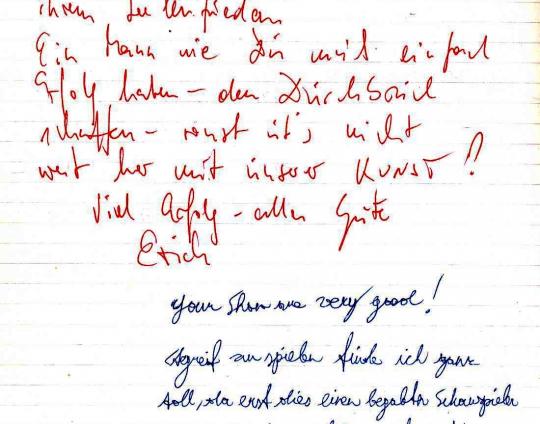 ihrem Seelenfrieden
Ein Mann wie Du muß einfach
Erfolg haben – den Durchbruch
schaffen – sonst ist's nicht
weit her mit unserer KUNST!
Viel Erfolg – alles Gute
Erich
Your Show was very good!
zu spielen finde ich ganz
toll, da erst dies einen begabten Schauspieler